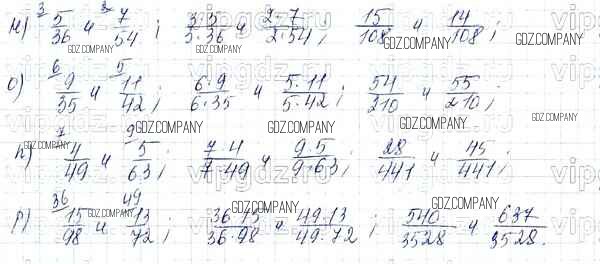 м) ³⁄ 5/36 и ²⁄ 7/54 ; 3·5/3·36 и 2·7/2·54 ; 15/108 и 14/108 ;
о) ⁶⁄ 9/35 и ⁵⁄ 11/42 ; 6·9/6·35 и 5·11/5·42 ; 54/210 и 55/210 ;
п) ⁷⁄ 4/49 и 5/63 ; 7·4/7·49 и 9·5/9·63 ; 28/441 и 45/441 ;
р) ³⁶⁄ 15/98 и ⁴⁹⁄ 13/72 ; 36·15/36·98 и 49·13/49·72 ; 540/3528 и 637/3528 .